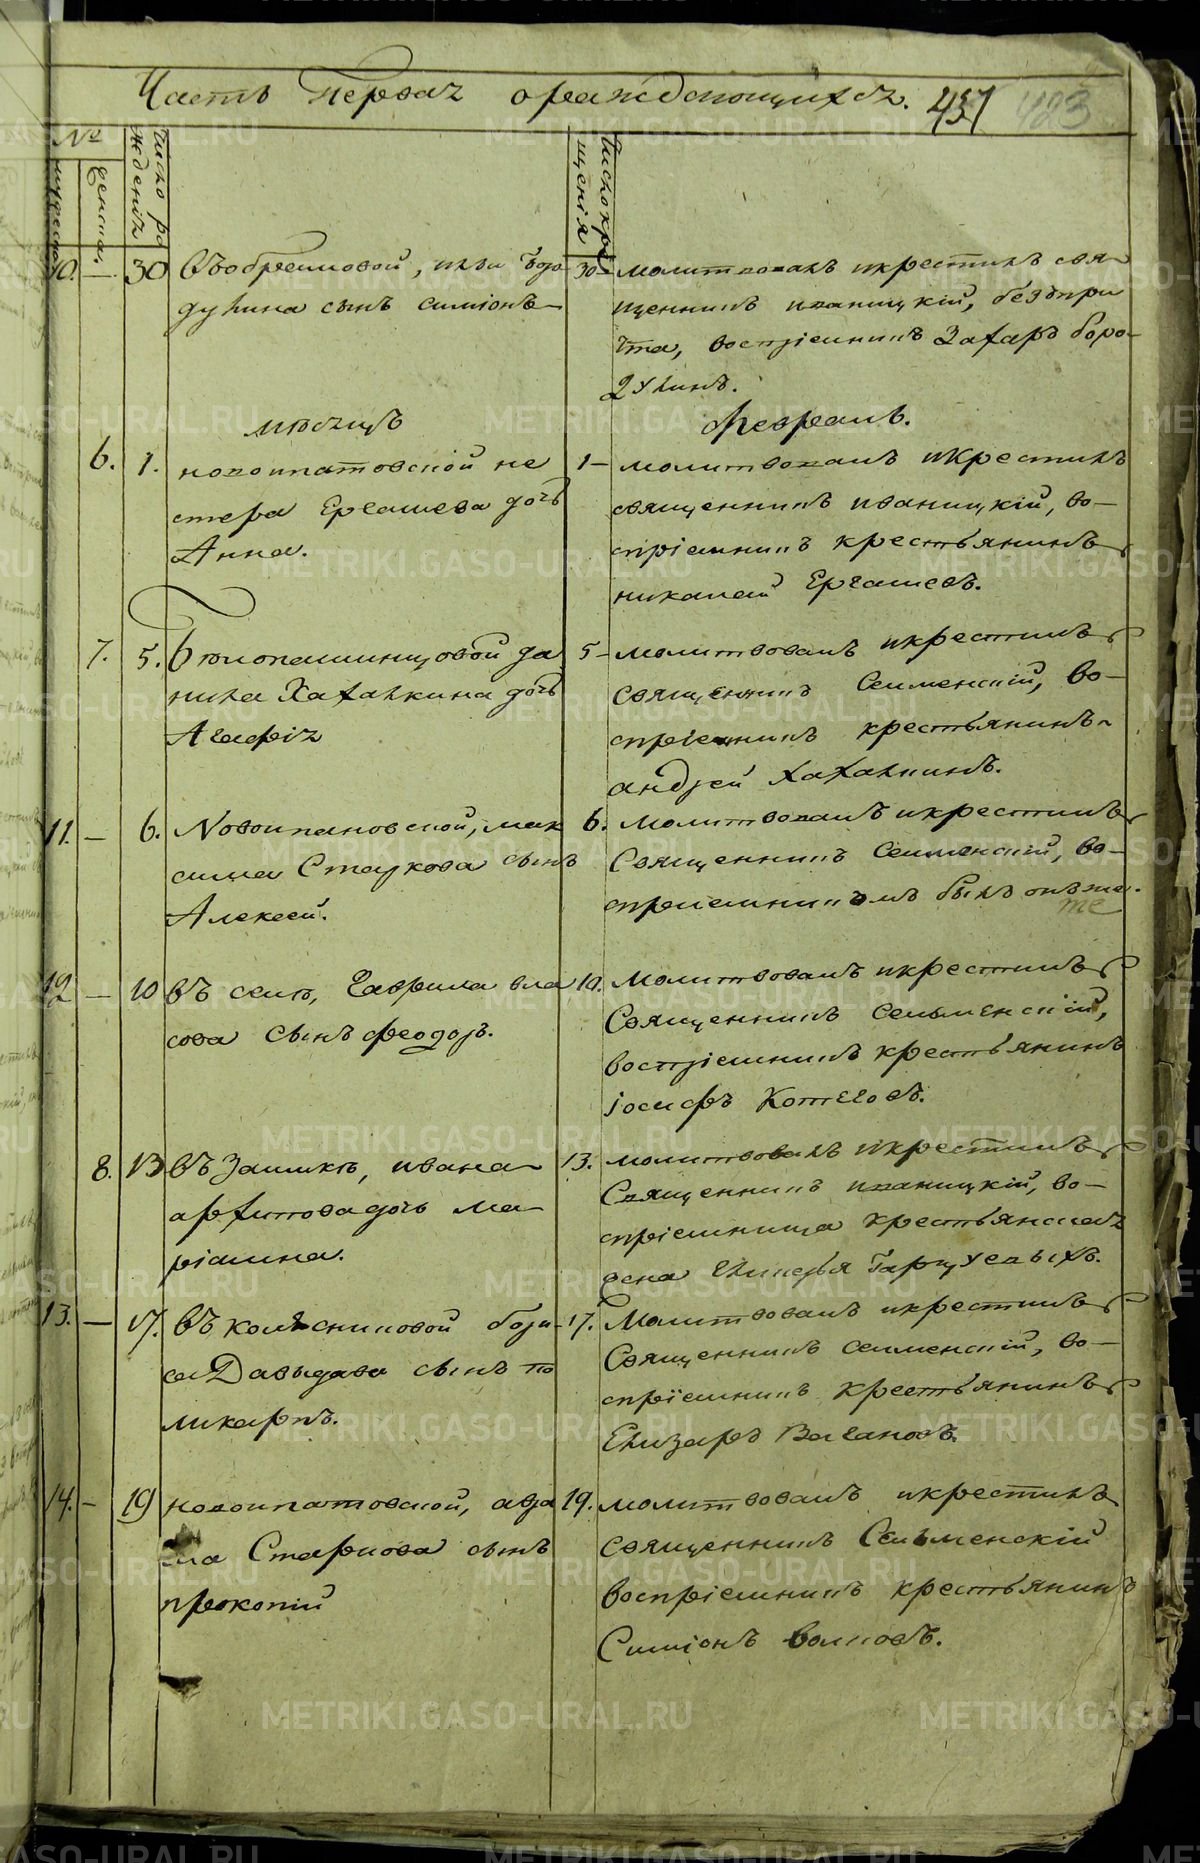 Часть первая ораждающихся. 457 423
№
мужеска
женска.
Число рождения
Число крещения
10. — 30 Въ обрамовой, ильи Боро-
дулина сынъ симіонъ
30 — молитвовалъ икрестилъ свя-
щенникъ иваницкій, безъпри-
чта, воспріемникъ Захаръ боро-
дулинъ.
мѣсяцъ Февраль.
6. 1. новоипатовской не
стера Ергашева дочь
Анна.
1 — молитвовалъ икрестилъ
священникъ иваницкій, во-
спріемникъ крестьянинъ
николай Ергашевъ.
7. 5. даниила Хахалкина дочь
Агафія
5 — молитвовалъ икрестилъ
священникъ Селменскій, во-
спріемникъ крестьянинъ
андрей Хахалкинъ.
11. — 6. Новоипановской, мак
сима Старкова сынъ
Алексей.
6. молитвовалъ икрестилъ
Священникъ Селменскій, во-
спреемникомъ былъ онъже.
те
12 — 10 Въ селѣ, Гаврила вла
сова сынъ феодоръ.
10. молитвовалъ икрестилъ
Священникъ Сельменскій,
воспріемникъ крестьянинъ
іосифъ Котеговъ.
8. 13 Въ Заимкѣ, ивана
архипова дочь ма-
ріамна.
13. молитвовалъ икрестилъ
Священникъ иваницкій, во-
спріемница крестьянская
жена
13. — 17. Въ колѣсниковой бори-
са Давыдова сынъ по
ликарпъ.
17. Молитвовалъ икрестилъ
Священникъ селменскій, во-
спріемникъ крестьянинъ
Елизаръ Вагановъ.
14. — 19 новоипатовской, авра
ма Старкова сынъ
прокопій
19. молитвовалъ икрестилъ
священникъ Сельменскій
воспріемникъ крестьянинъ
Симіонъ волковъ.
METRIKI.GASO-URAL.RU